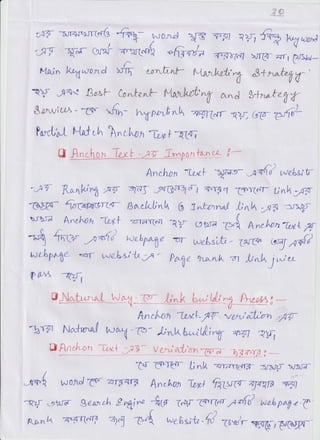 20
এর মাঝখানেও কিছু word যুক্ত করা হয়, কিন্তু keyword
এর মূল অর্থ কখনোই পরিবর্তন করানো যাবে না, যেমন-
Main keyword যদি content Marketing Strategy
হয় এবং Best Content Marketing and Strategy
Services - কে যদি hyperlink করানো হয়, তবে সেটি
Partial Match Anchon Text হবে।
Anchon Text -এর Importance :-
Anchon Text মূলত একটি website
-এর Ranking এর জন্য প্রয়োজন। কারণ কোনো link -এর
Backlink ও Internal link -এর সময়
যখন Anchon Text বানানো হয় তখন সেই Anchon Text এর
মধ্য দিয়ে একটি webpage বা website- থেকে অন্য একটি
webpage বা website এ Page rank বা link juice
pass হয়।
Natural Way - তে link building Press :-
Anchon Text-এর veriation -এর
দ্বারা Natural Way - তে link building করা হয়,
Anchon Text -এর veriation কেন দরকার :-
যে কোনো link বানানোর সময় যখন
একই word কে বারবার Anchon Text হিসেবে ব্যবহার করা
হয় তখন Search Engine ধরে নেয় কোনো একটি webpage কে
Rank করানোর জন্য সেই website টি চেষ্টা করছে,